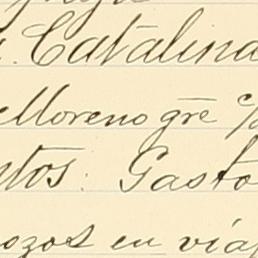 Catalina
Moreno gre c/
tos: Gasto
ozos en viaj